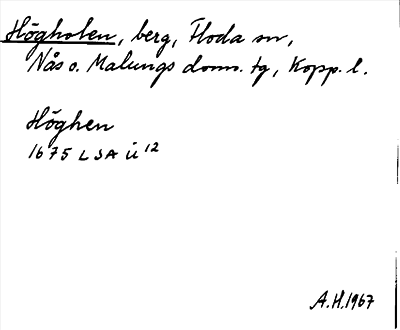 Högholen, berg, Floda sn,
Nås o. Malungs doms. tg, Kopp. l.
Höghen
1675 LSA Ü 12
A.H. 1967